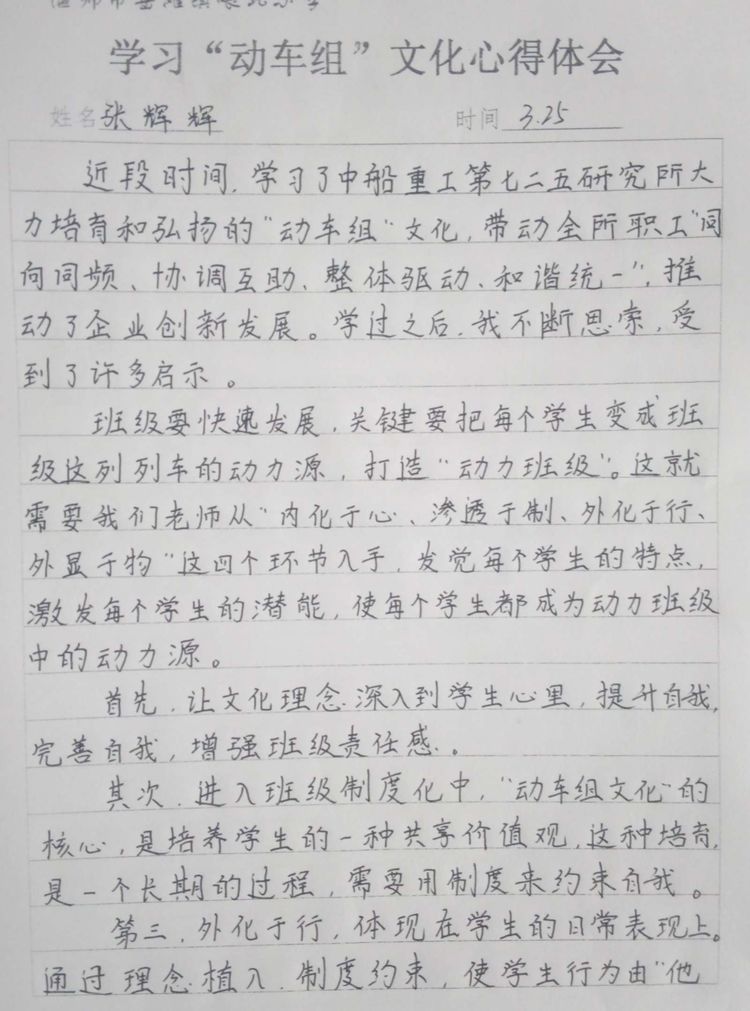 学习“动车组”文化心得体会
姓名 张辉辉 时间 3.25
近段时间,学习了中船重工第七二五研究所大
力培育和弘扬的“动车组“文化,带动全所职工“同
向同频、协调互助、整体驱动、和谐统一”,推
动了企业创新发展。学过之后,我不断思索,受
到了许多启示。
班级要快速发展,关键要把每个学生变成班
级这列列车的动力源,打造“动力班级”。这就
需要我们老师从“内化于心、渗透于制、外化于行、
外显于物“这四个环节入手,发觉每个学生的特点,
激发每个学生的潜能,使每个学生都成为动力班级
中的动力源。
首先,让文化理念深入到学生心里,提升自我,
完善自我,增强班级责任感。
其次,进入班级制度化中,“动车组文化“的
核心,是培养学生的一种共享价值观,这种培育,
是一个长期的过程,需要用制度来约束自我。
第三,外化于行,体现在学生的日常表现上。
通过理念植入,制度约束,使学生行为由“他